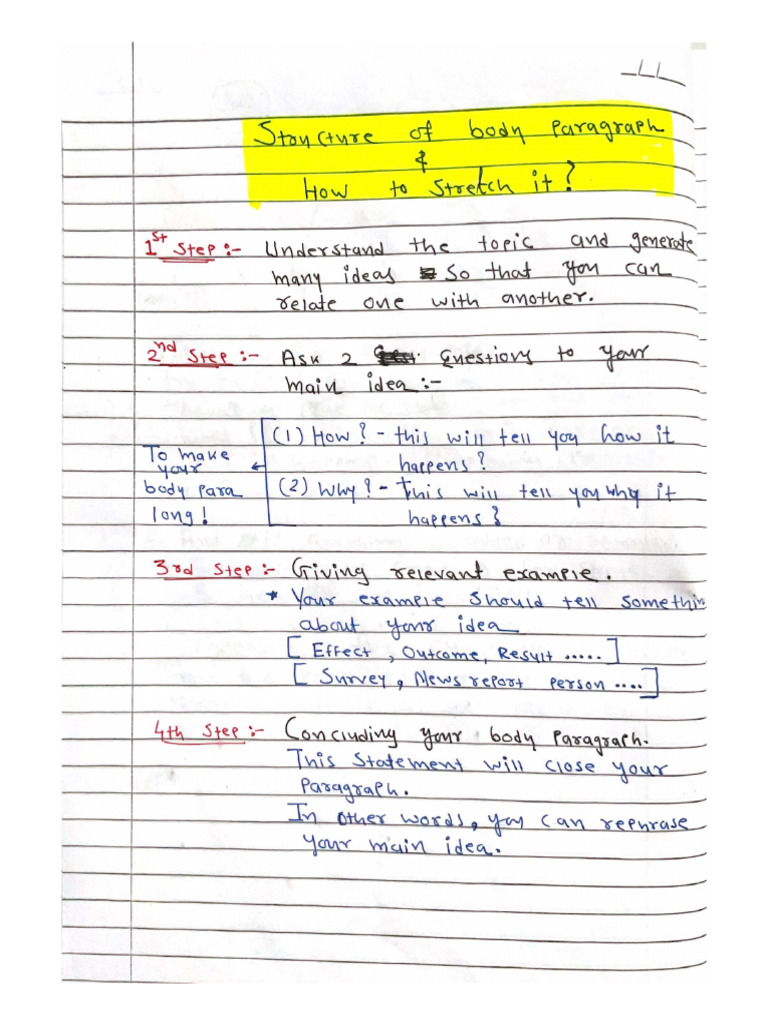 Structure of body Paragraph
&
How to Stretch it?
1st Step :- Understand the topic and generate
many ideas So that you can
relate one with another.
2nd Step :- Ask 2 Questions to your
main idea :-
(1) How? - this will tell you how it
happens?
(2) Why? - This will tell you why it
happens?
To make
your
body para
long!
3rd Step :- Giving relevant example.
* Your example should tell somethin
about your idea
[ Effect, Outcome, Result ..... ]
[ Survey, News report person .... ]
4th Step :- Concluding your body Paragraph.
This Statement will close your
Paragraph.
In other words, you can rephrase
your main idea.